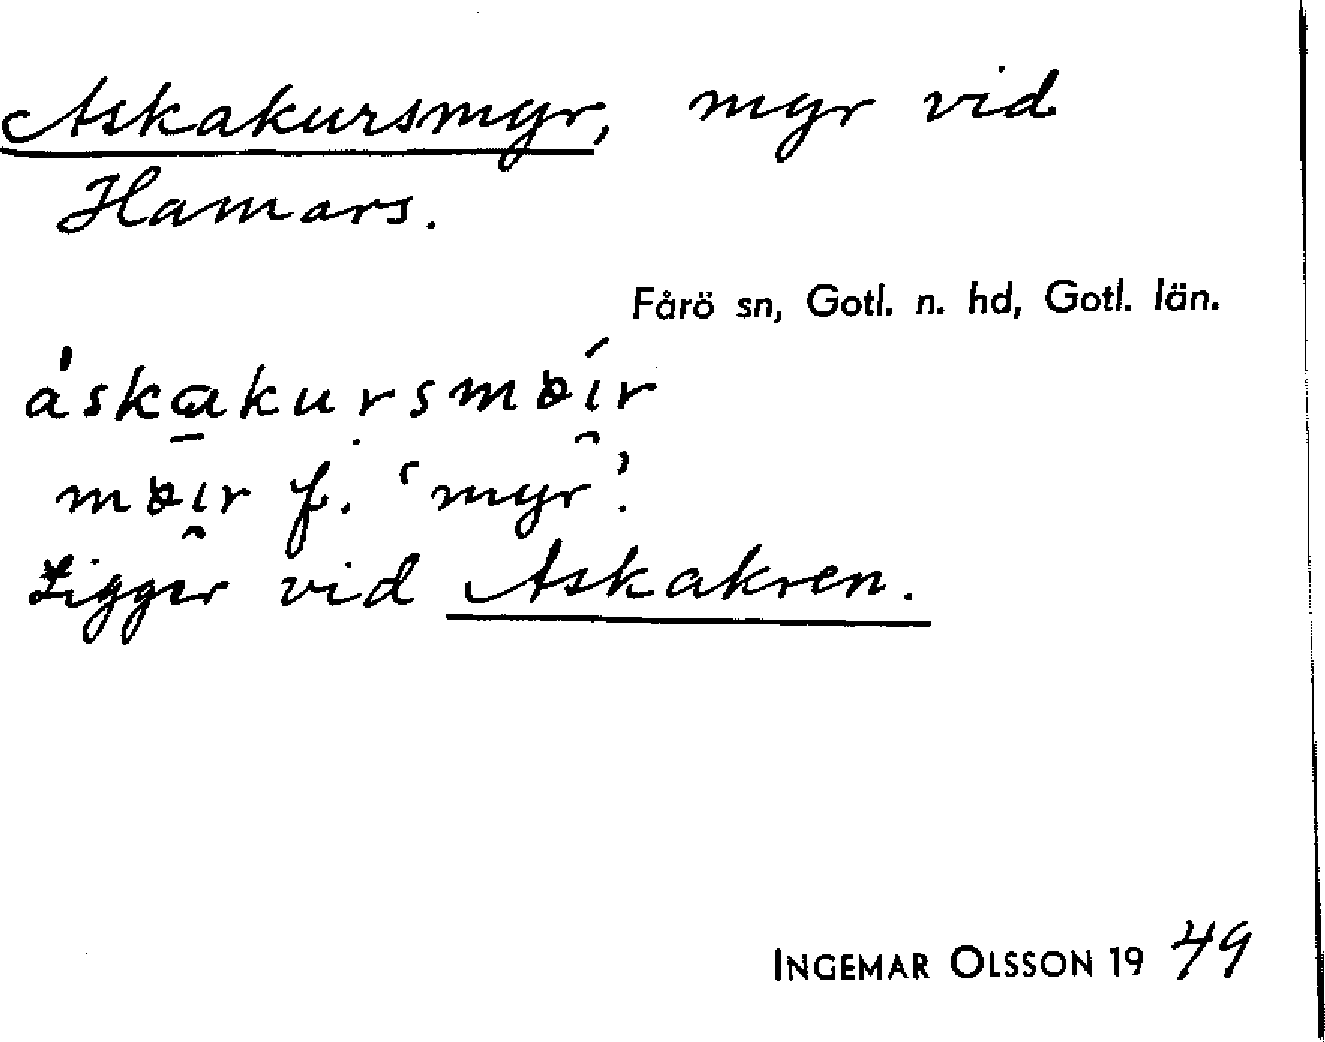 Askakursmyr, myr vid
Hamars.
Fårö sn, Gotl. n. hd, Gotl. län.
áskakursmɒír
mɒir f. ‘myr’.
Ligger vid Askakren.
INGEMAR OLSSON 1949